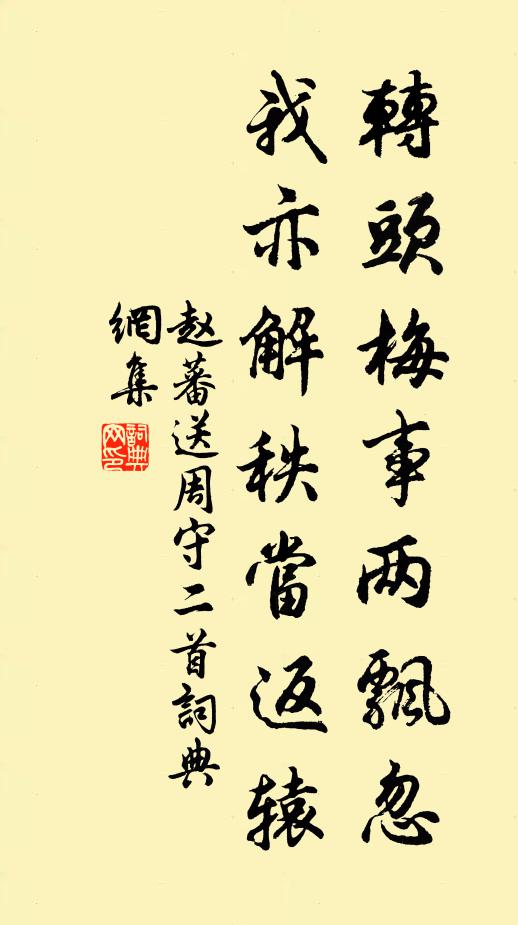 轉頭梅事两飄忽
我亦解秩當返辕
赵蕃送周守二首詞典
網集
詞典
网印